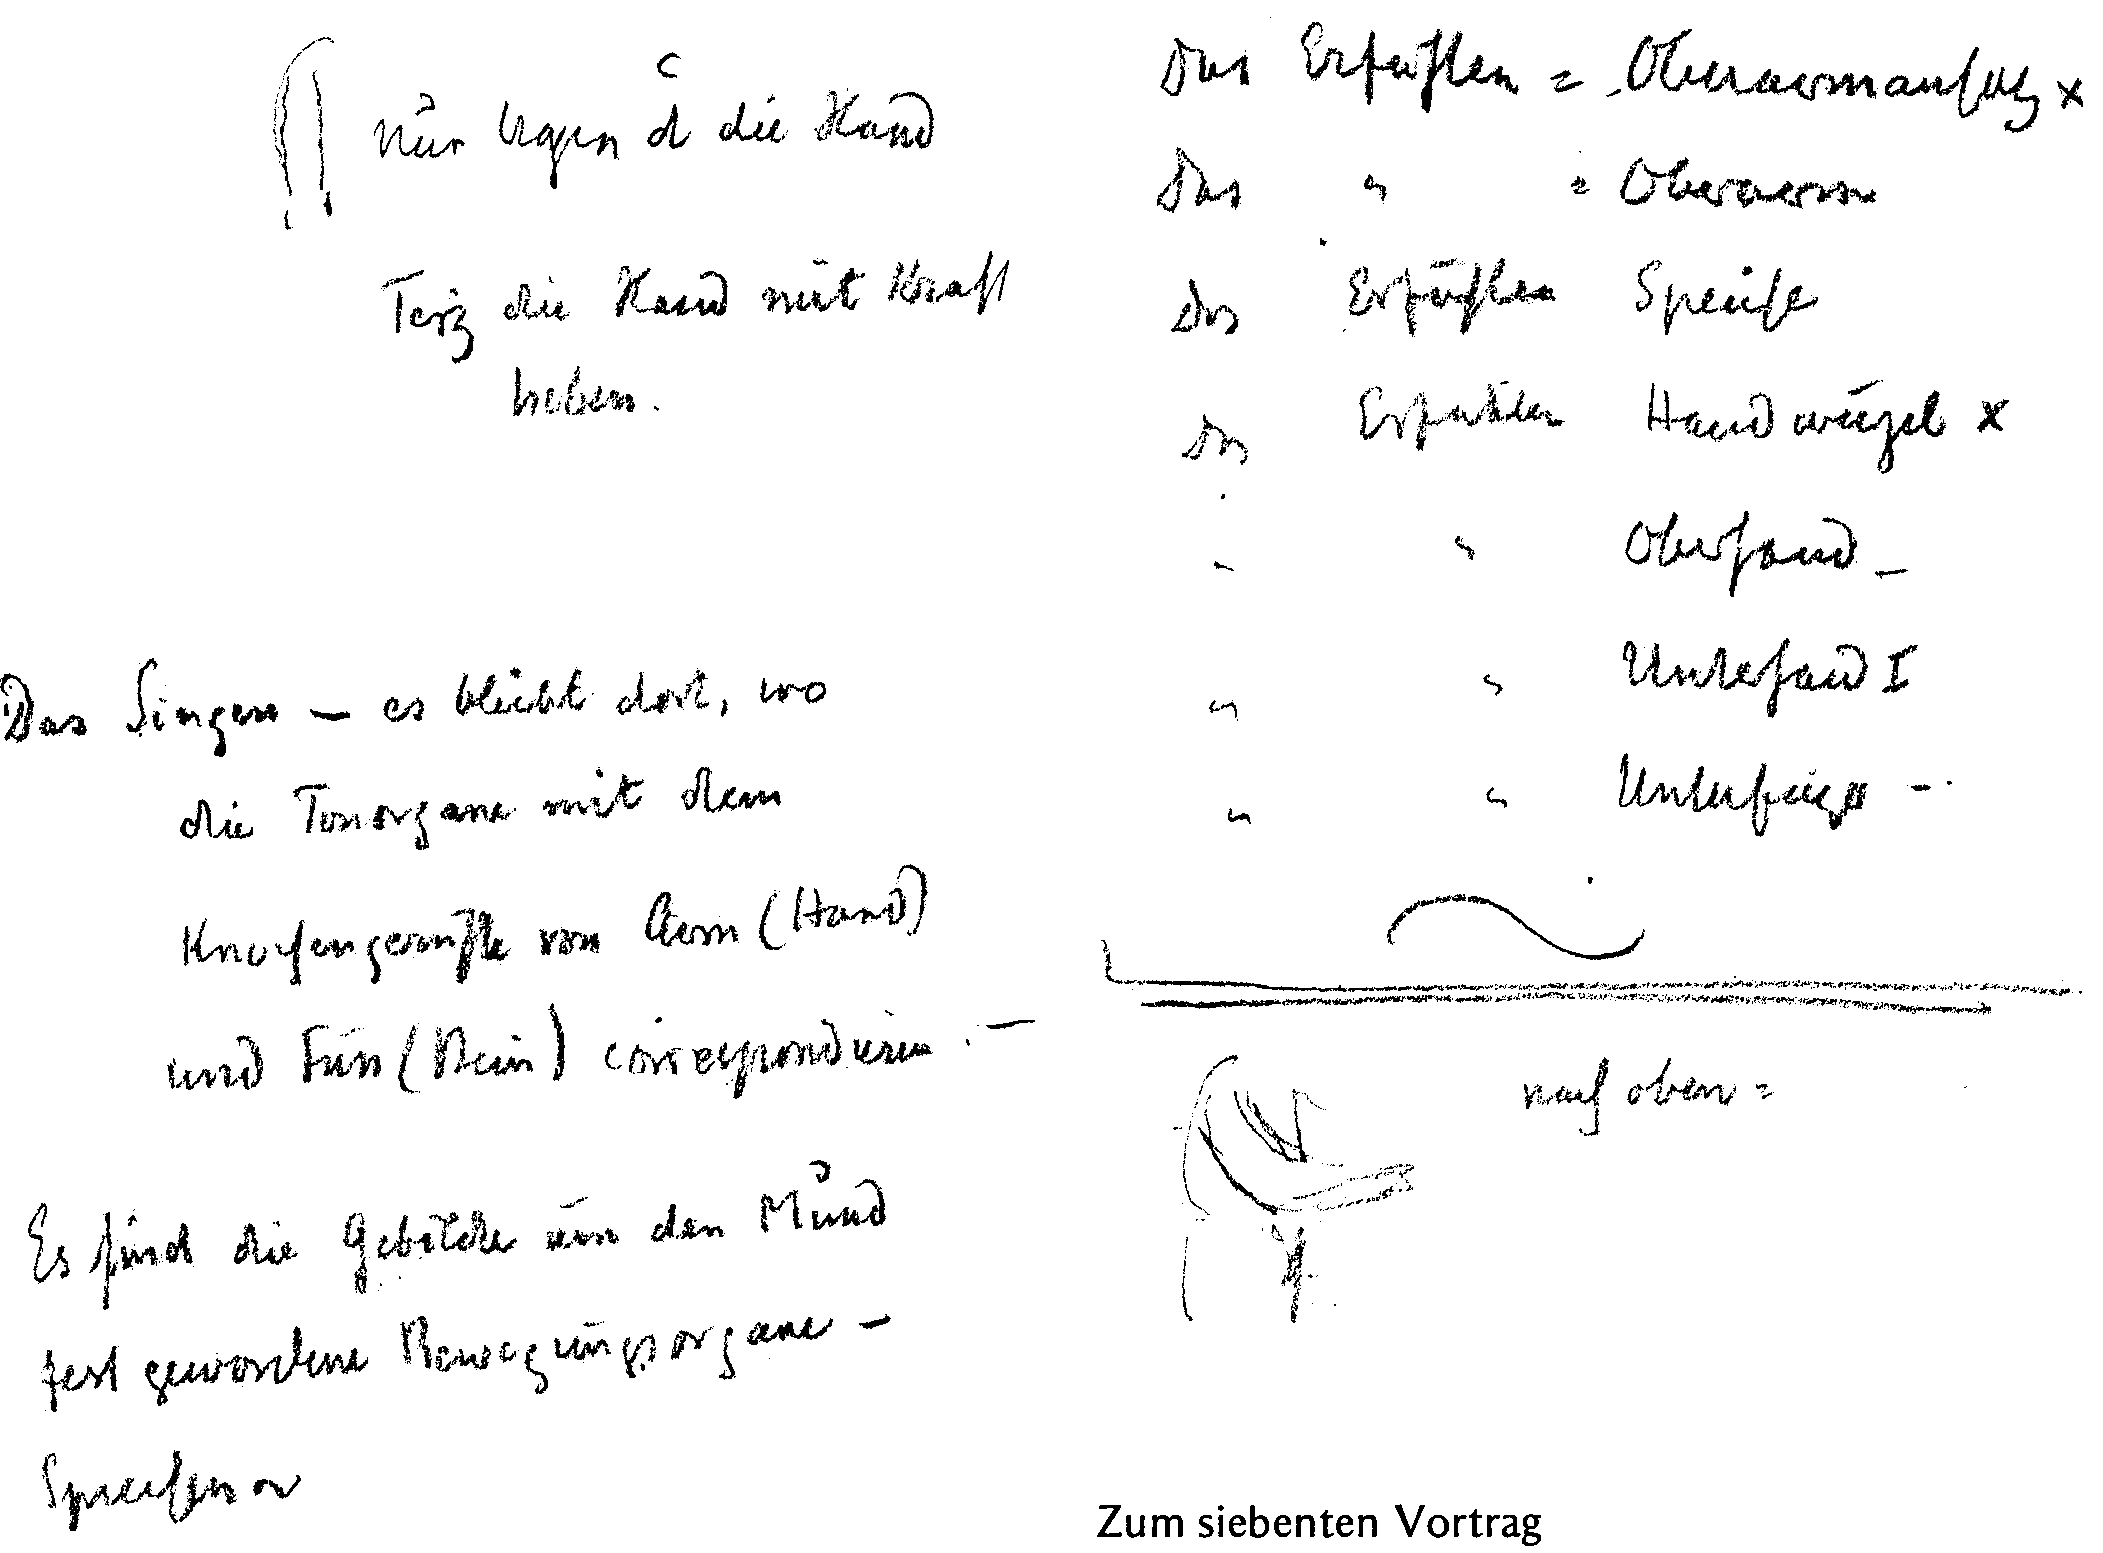 c
nur legen d die Hand
Terz die Hand mit Kraft
heben.
Das Singen – es bleibt dort, wo
die Tonorgane mit dem
Knochengerüste von Arm (Hand)
und Fuss (Bein) correspondieren. –
Es sind die Gebilde um den Mund
fest gewordene Bewegungsorgane –
Das Erfühlen = Oberarmansatz x
Das " = Oberarm
Das Erfühlen Speiche
Das Erfühlen Handwurzel x
" " Oberhand –
" " Unterhand I
" " Unterfinger –
nach oben =
Zum siebenten Vortrag